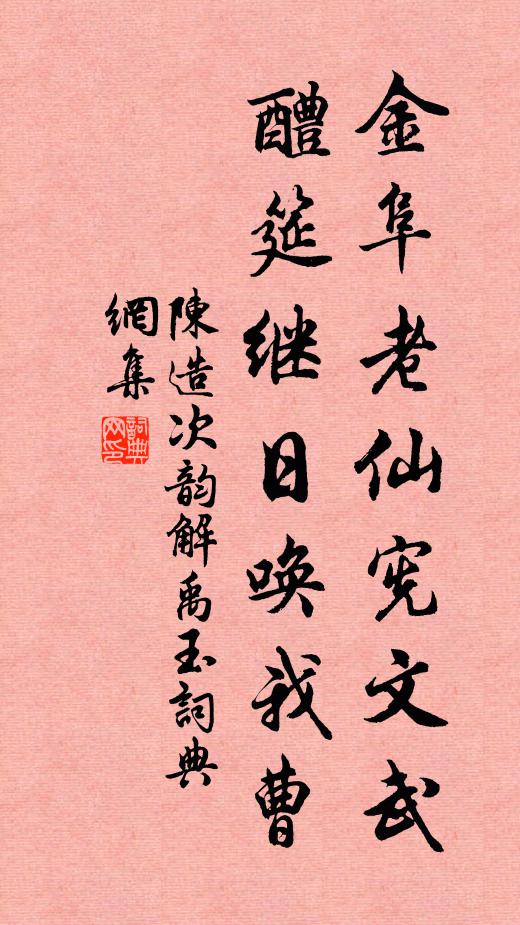 金阜老仙宪文武
醴筵继日唤我曹
陳造次韵解禹玉詞典
網集
詞典网印